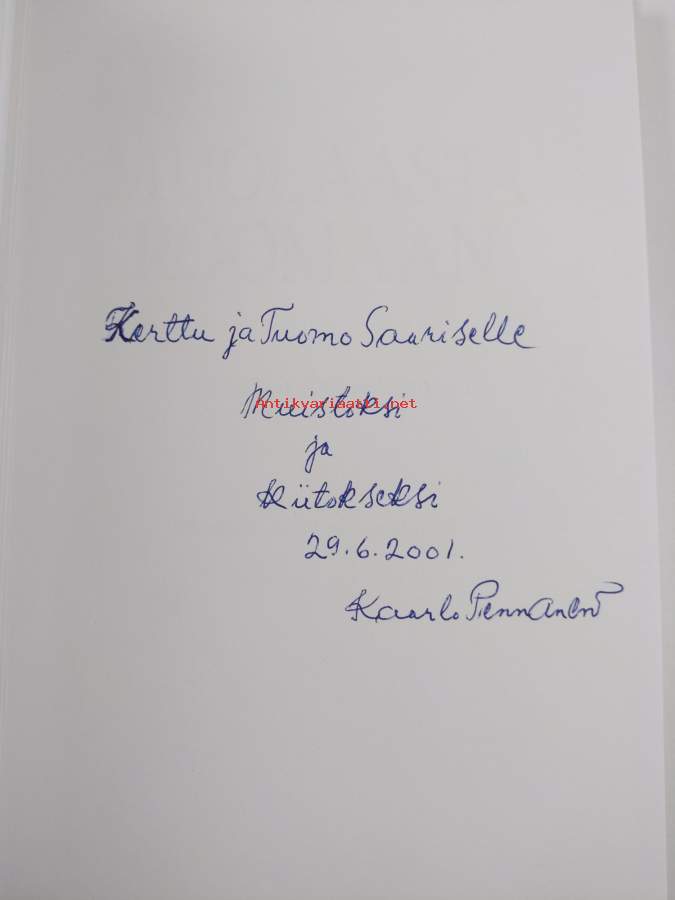 Kerttu ja Tuomo Sauriselle
Muistoksi
Antikvariaatti.net
ja
Kiitokseksi
29.6.2001.
Kaarlo Pennanen